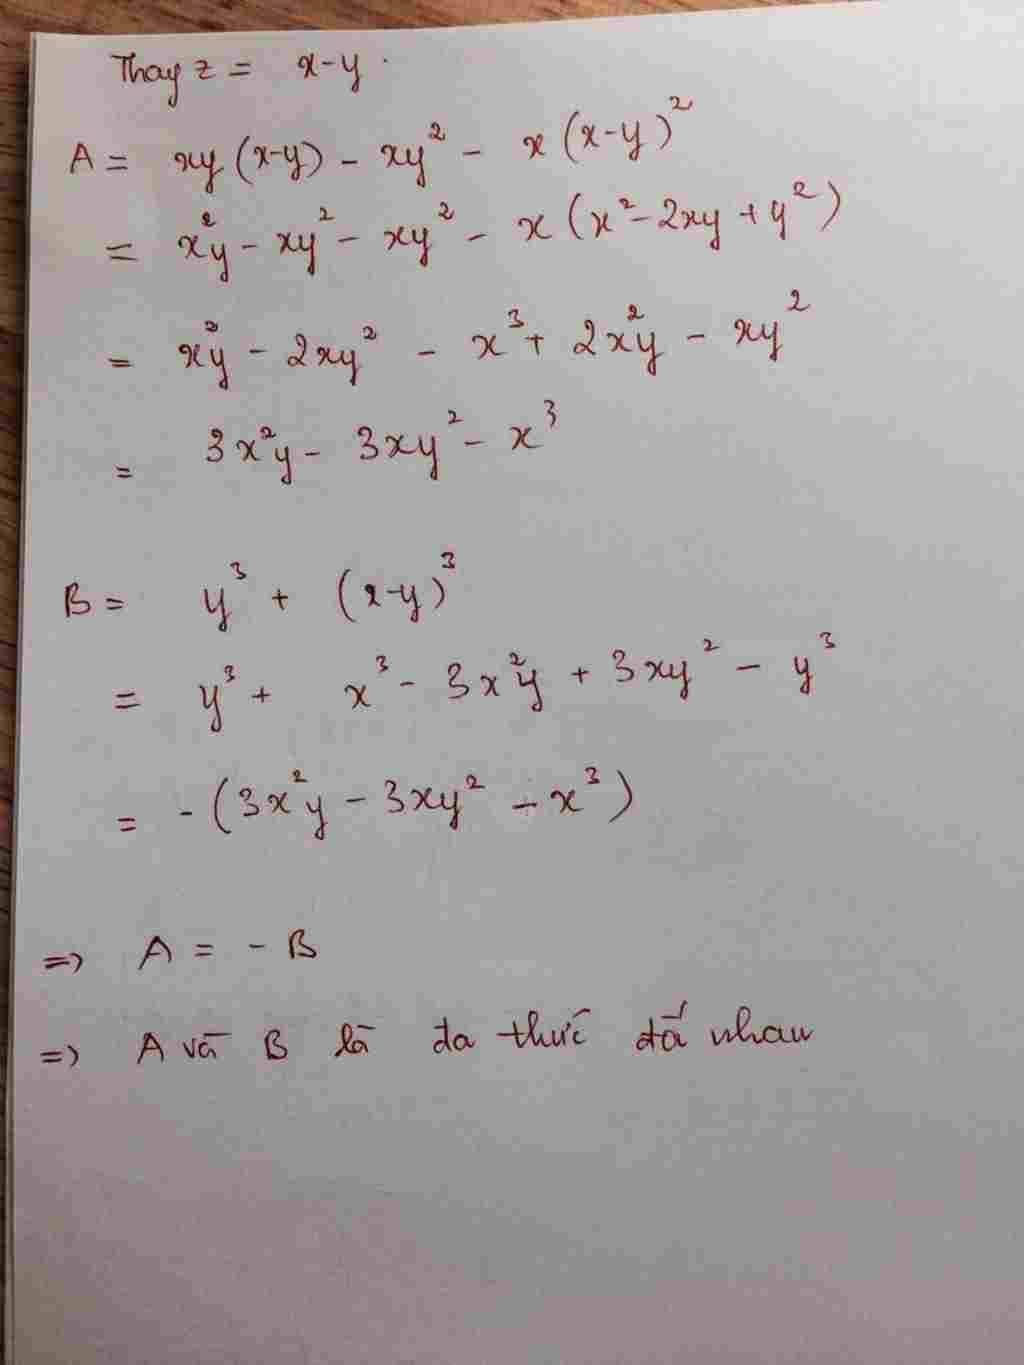 Thay z = x-y.
A = xy(x-y) - xy² - x(x-y)²
= x²y - xy² - xy² - x(x² - 2xy + y²)
= x²y - 2xy² - x³ + 2x²y - xy²
= 3x²y - 3xy² - x³
B = y³ + (x-y)³
= y³ + x³ - 3x²y + 3xy² - y³
= -(3x²y - 3xy² - x³)
=> A = -B
=> A và B là đa thức nhau